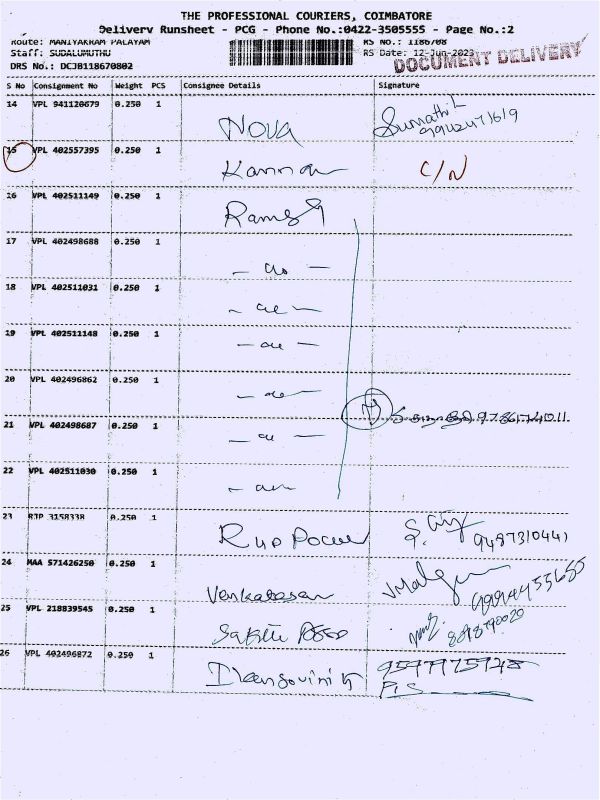 THE PROFESSIONAL COURIERS, COIMBATORE
Delivery Runsheet - PCG - Phone No.:0422-3505555 - Page No.:2
Route: MANIYAKRAM PALAYAM RS No.: 1186708
Staff: SUDALUMUTHU RS Date: 12-Jun-2023
DOCUMENT DELIVERY
DRS No.: DCJB118670802
S No Consignment No Weight PCS Consignee Details Signature
14 VPL 941120679 0.250 1 NOVA Sumathi
15 VPL 402557395 0.250 1 Kannan C/N
16 VPL 402511149 0.250 1 Ramesh
17 VPL 402498688 0.250 1
18 VPL 402511031 0.250 1
19 VPL 402511148 0.250 1
20 VPL 402496862 0.250 1
21 VPL 402498687 0.250 1
22 VPL 402511030 0.250 1
23 RJP 3158338 0.250 1 9487310441
24 MAA 571426250 0.250 1 Venkatesan 9994455685
25 VPL 218839545 0.250 1
26 VPL 402496872 0.250 1